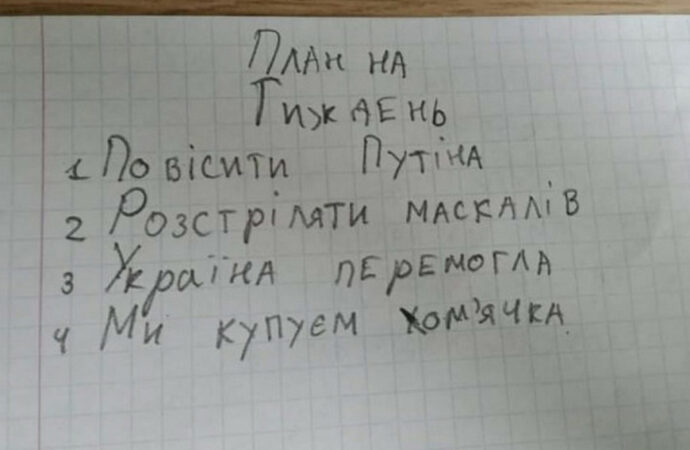 План на
Тиждень
1 Повісити Путіна
2 Розстріляти маскалів
3 Україна перемогла
4 Ми купуєм хом'ячка